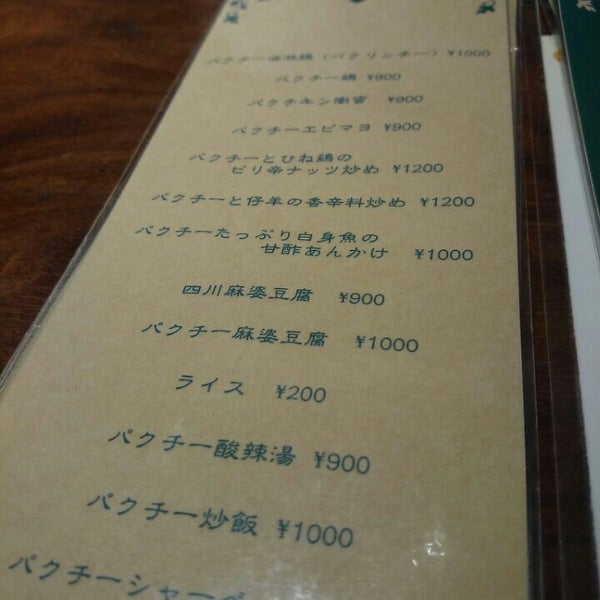 パクチー油淋鶏（パクリンチー）¥1000
パクチー鶏 ¥900
パクチキン南蛮 ¥900
パクチーエビマヨ ¥900
パクチーとひね鶏の
ピリ辛ナッツ炒め ¥1200
パクチーと仔羊の香辛料炒め ¥1200
パクチーたっぷり白身魚の
甘酢あんかけ ¥1000
四川麻婆豆腐 ¥900
パクチー麻婆豆腐 ¥1000
ライス ¥200
パクチー酸辣湯 ¥900
パクチー炒飯 ¥1000
パクチーシャーベ